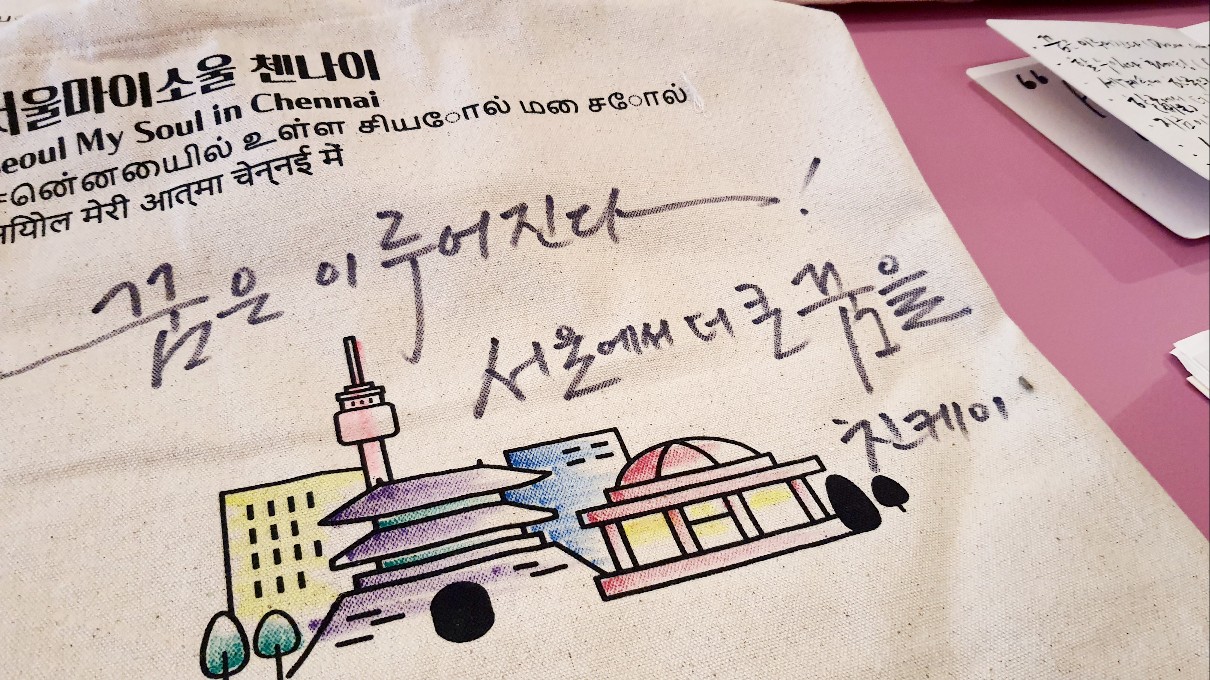 서울마이소울 첸나이
Seoul My Soul in Chennai
சென்னையில் உள்ள சியோல் மை சோல்
सियोल मेरी आत्मा चेन्नई में
꿈은 이루어진다!
서울에서 더 큰 꿈을
친케이
66